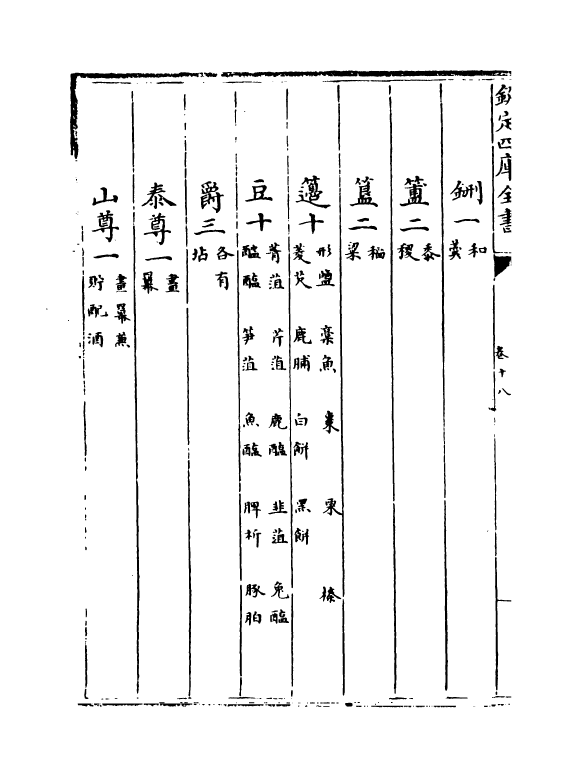 欽定四庫全書
卷十八
鉶一 和羹
簠二 黍稷
簋二 稻粱
籩十 形鹽 藁魚 棗 栗 榛 菱芡 鹿脯 白餅 黑餅
豆十 菁菹 芹菹 鹿醢 韭菹 兔醢 醓醢 笋菹 魚醢 脾析 豚胉
爵三 各有坫
泰尊一 畫羃
山尊一 畫羃兼貯配酒